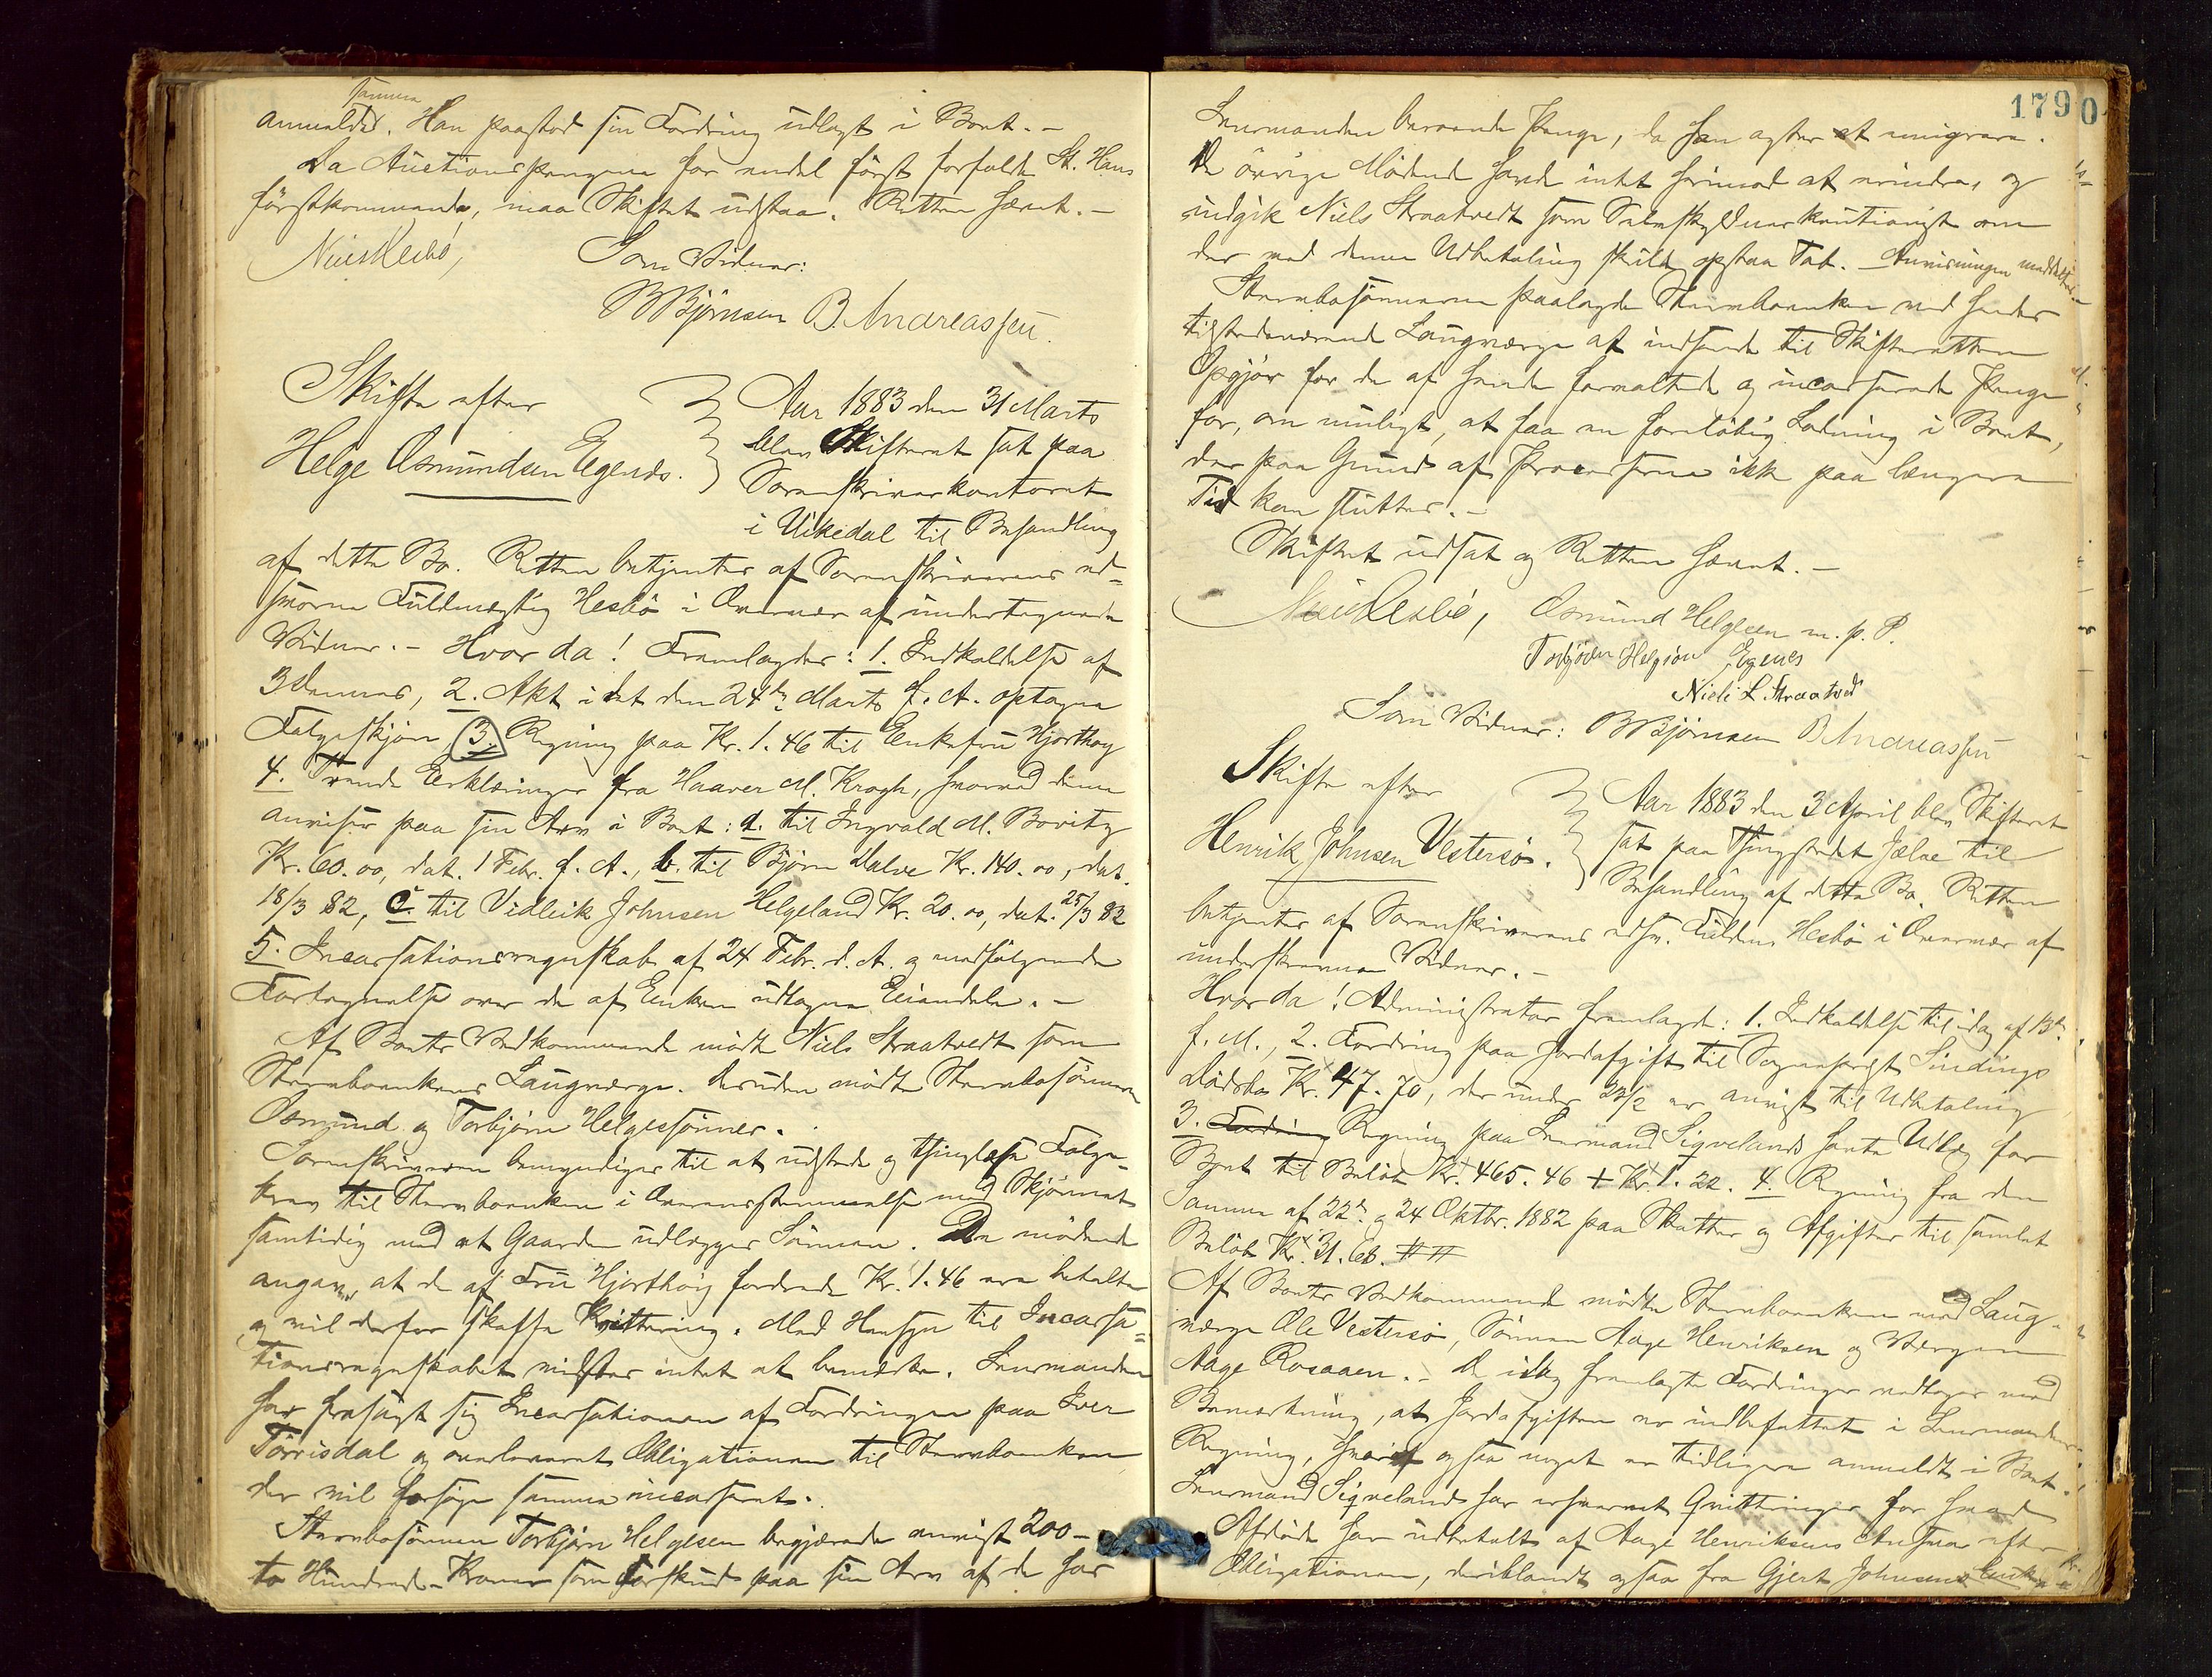 samme
anmeldt. Han paastod sin Fordring udlagt i Boet. –
Da Auctionspengene for endel først forfalde St. Hans
førstkommende, maa Skiftet udstaa. Retten hævet. –
Som Vidner:
BBjørnsen B. Andreassen.
Skifte efter
Helge Osmundsen Egenes.
Aar 1883 den 31 Marts
blev Skifteret sat paa
Sorenskriverkontoret
i Vikedal til Behandling
af dette Bo. Retten betjentes af Sorenskriverens ed-
svorne Fuldmægtig Hesbø i Overvær af undertegnede
Vidner. – Hvor da! Fremlagdes: 1. Indkaldelse af
3 dennes, 2. Akt i det den 24de Marts d. A. optagne
Følgeskjøn, 3. Regning paa Kr. 1.46 til Enkefru Hjorthøy
4. Trende Erklæringer fra Haaver M. Krogh, hvorved denne
anviser paa sin Arv i Boet: a. til Ingvald M. Bovitz
Kr. 60.00, dat. 1 Febr. d. A., b. til Bjørn Kr. 140.00, dat.
18/3 82, c. til Vidleik Johnsen Helgeland Kr. 20.00, dat. 25/3 82
5. Incassationsregnskab af 24 Febr. d. A. og medfølgende
Fortegnelse over de af Enken udtagne Eiendele. –
Af Boets Vedkommende mødte Niels Straatvedt som
Stervboenkens Laugværge. Desuden mødte Stervbosønnerne
Osmund og Torbjørn Helgessønner.
Sorenskriveren bemyndiges til at udstede og thinglæse Følge-
brev til Stervboenken i Overensstemmelse med Skjønnet
samtidig med at Gaarden udlægges Sønnen. De mødende
angaver, at de af Fru Hjorthøy fordrede Kr. 1.46 ere betalte
og vil derfor skaffe Kvittering. Med Hensyn til Incassa-
tionsregnskabet vidstes intet at bemærke. Lensmanden
har frasagt sig Incassationen af Fordringen paa Iver
Tørrisdal og overleveret Obligationen til Stervboenken
der vil forsøge samme incasseret.
Stervbosønnen Torbjørn Helgesen begjærede anvist 200 –
to Hundrede – Kroner som Forskud paa sin Arv af de hos
1790
Lensmanden beroende Penge, da han agter at emigrere.
De øvrige Mødende havde intet herimod at erindre, og
indgik Niels Straatvedt som Selvskyldnerkautionist om
der ved denne Udbetaling skulde opstaa Tab. – Anvisningen meddeltes
Stervbosønnerne paalagde Stervboenken ved hendes
tilstedeværende Laugværge at indsende til Skifteretten
Opgjør for de af hende forvaltede og incasserede Penge
for, om muligt, at faa en foreløbig Lodning i Boet,
der paa Grund af Processerne ikke paa længere
Tid kan sluttes. –
Skiftet udsat og Retten hævet. –
Osmund Helgesen m. p. P.
Torbjörn Helgesen Egenes
Niels L. Straatved
Som Vidner: BBjørnsen B Andreassen
Skifte efter
Henrik Johnsen Vestersø.
Aar 1883 den 3 April blev Skifteret
sat paa Thingstedet Jælse til
Behandling af dette Bo. Retten
betjentes af Sorenskriverens edsv. Fuldm. Hesbø i Overvær af
underskrevne Vidner. –
Hvor da! Administrator fremlagde: 1. Indkaldelse til idag af 13de
f. M., 2. Fordring paa Jordafgift til Sogneprest Sindings
Dødsbo Kr. 47.70, der under 23/2 er anvist til Udbetaling
3. Regning paa Lensmand Sigvelands havte Udlæg for
Boet til Beløb Kr. 465.46 + Kr. 1.22. 4. Regning fra den
Samme af 22de og 24 Oktbr. 1882 paa Skatter og Afgifter til samlet
Beløb Kr. 31.66.
Af Boets Vedkommende mødte Stervboenken med Laug-
værge Ole Vestersø, Sønnen Aage Henriksen og Værgen
Aage Rosaaen. – De idag fremlagte Fordringer vedtoges med
Bemærkning, at Jordafgiften er indbefattet i Lensmandens
Regning, hvoraf ogsaa noget er tidligere anmeldt i Boet.
Lensmand Sigveland har erhvervet Qvitteringer for hvad
Afdøde har udbetalt af Aage Henriksens efter
Obligationen, deriblandt ogsaa fra Gjert Johnsens Enke